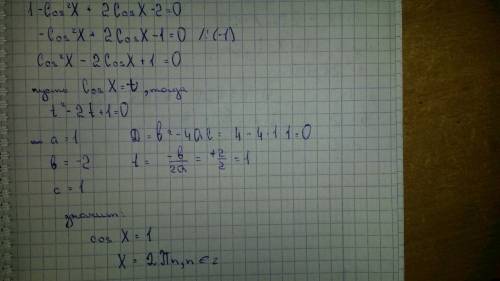 1-Cos²X + 2CosX-2=0
-Cos²X + 2CosX-1=0 /:(-1)
Cos²X - 2CosX + 1 = 0
пусть CosX=t, тогда
t²-2t+1=0
a = 1 D = b²-4ac = 4-4·1·1=0
b = -2 t = -b/2a = +2/2 = 1
c = 1
значит:
cos X = 1
X = 2Пn, n ∈ z